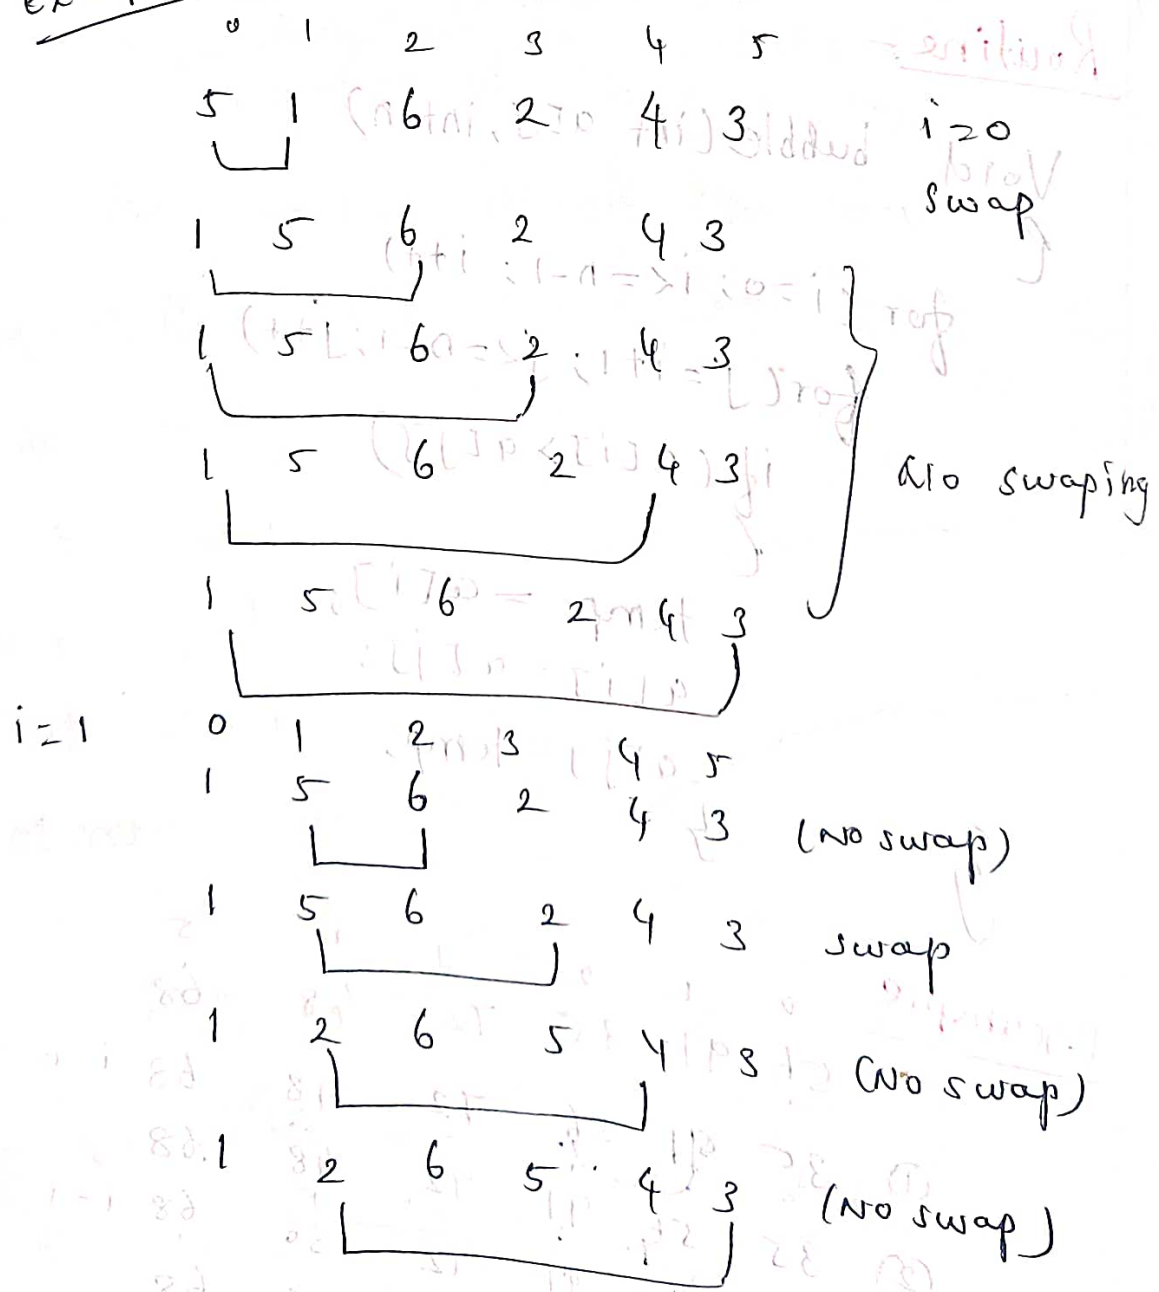 Ex
0 1 2 3 4 5
5 1 6 2 4 3 i=0
swap
1 5 6 2 4 3
1 5 6 2 4 3
1 5 6 2 4 3 No swaping
1 5 6 2 4 3
i=1 0 1 2 3 4 5
1 5 6 2 4 3 (No swap)
1 5 6 2 4 3 swap
1 2 6 5 4 3 (No swap)
1 2 6 5 4 3 (No swap)